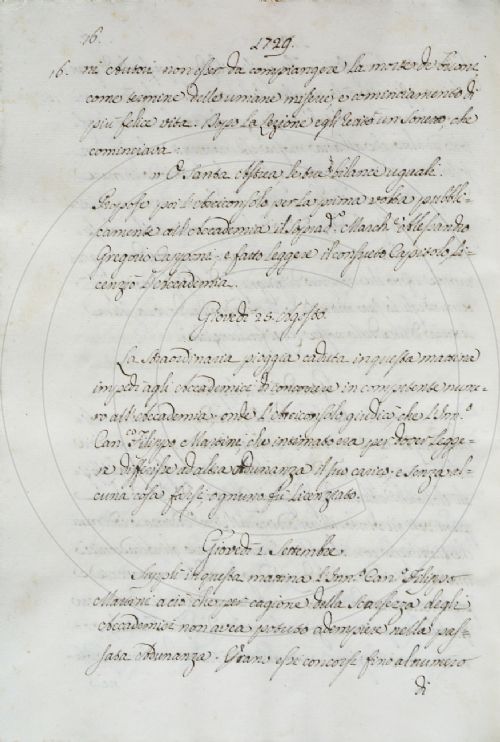 16.
1729.
16. ni Autori non esser da compiangere la morte de Buoni
come termine delle umane miserie, e cominciamento di
più felice vita. Dopo la Lezione egli recitò un Sonetto, che
cominciava:
O Santa Astrea le tue bilance uguali.
Propose poi l'Arciconsolo per la prima volta pubbli-
camente all'Accademia il Soprad.º March.e Alessandro
Gregorio Capponi. e fatto leggere il consueto Capitolo li-
cenziò l'Accademia.
Giovedì 25. Agosto.
La straordinaria pioggia caduta in questa mattina
impedì agli Accademici di concorrere in competente nume-
ro all'Accademia, onde l'Arciconsolo giudicò che l'Inn.º
Can.co Filippo Martini, che intornato era per dover legge-
re differisse ad altra Adunanza il suo carico. e senza al-
cuna cosa farsi, ognuno fù licenziato.
Giovedì 1. Settembre.
Supplì in questa mattina l'Inn.º Can.co Filippo
Martini a ciò che per cagione della scarsezza degli
Accademici non avea potuto adempiere nella pas-
sata Adunanza. Erano essi concorsi fino al numero
di